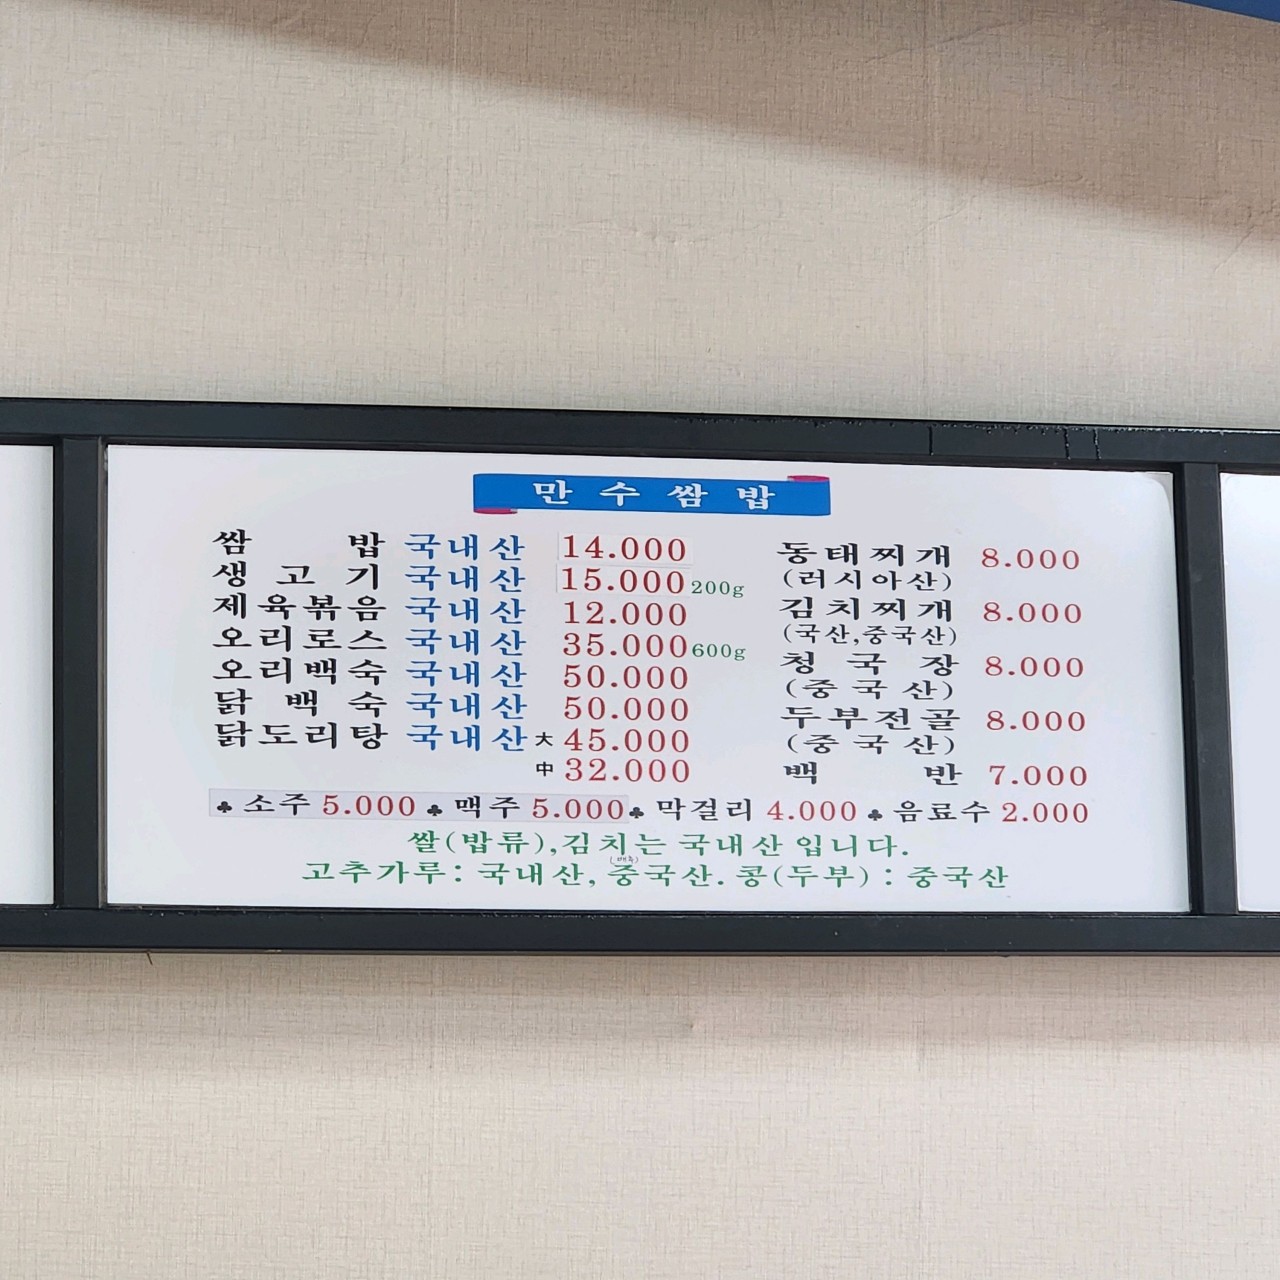 만수쌈밥
쌈밥 국내산 14.000
생고기 국내산 15.000 200g
제육볶음 국내산 12.000
오리로스 국내산 35.000 600g
오리백숙 국내산 50.000
닭백숙 국내산 50.000
닭도리탕 국내산 大 45.000
中 32.000
동태찌개 8.000
(러시아산)
김치찌개 8.000
(국산,중국산)
청국장 8.000
(중국산)
두부전골 8.000
(중국산)
백반 7.000
♣ 소주 5.000 ♣ 맥주 5.000 ♣ 막걸리 4.000 ♣ 음료수 2.000
쌀(밥류),김치는 국내산 입니다.
고추가루: 국내산, 중국산. 콩(두부) : 중국산